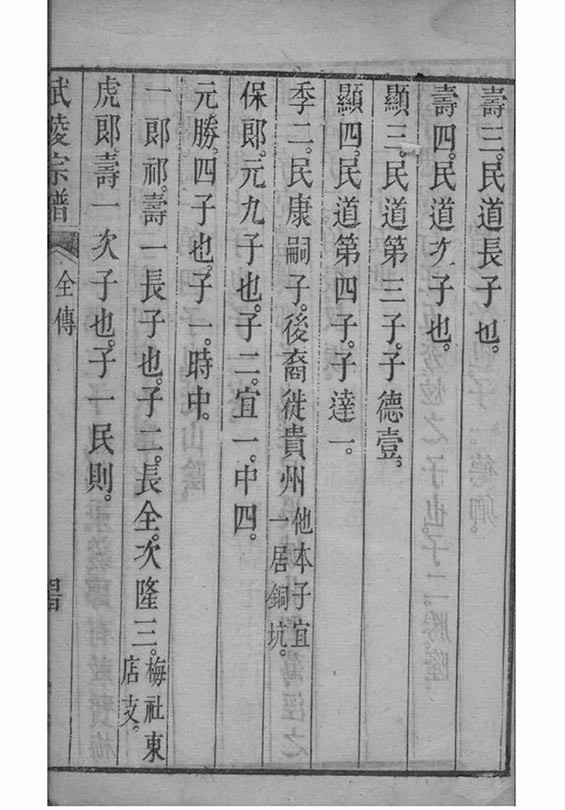 壽三。民道長子也。
壽四。民道次子也。
顯三。民道第三子。子德壹。
顯四。民道第四子。子達一。
季二。民康嗣子。後裔徙貴州他本子宜一居銅坑。
保郎。元九子也。子二。宜一。中四。
元勝。四子也。子一。時中。
一郎祁。壽一長子也。子二。長全。次隆三。梅社東店支。
虎郎。壽一次子也。子一民則。
武陵宗譜 全傳